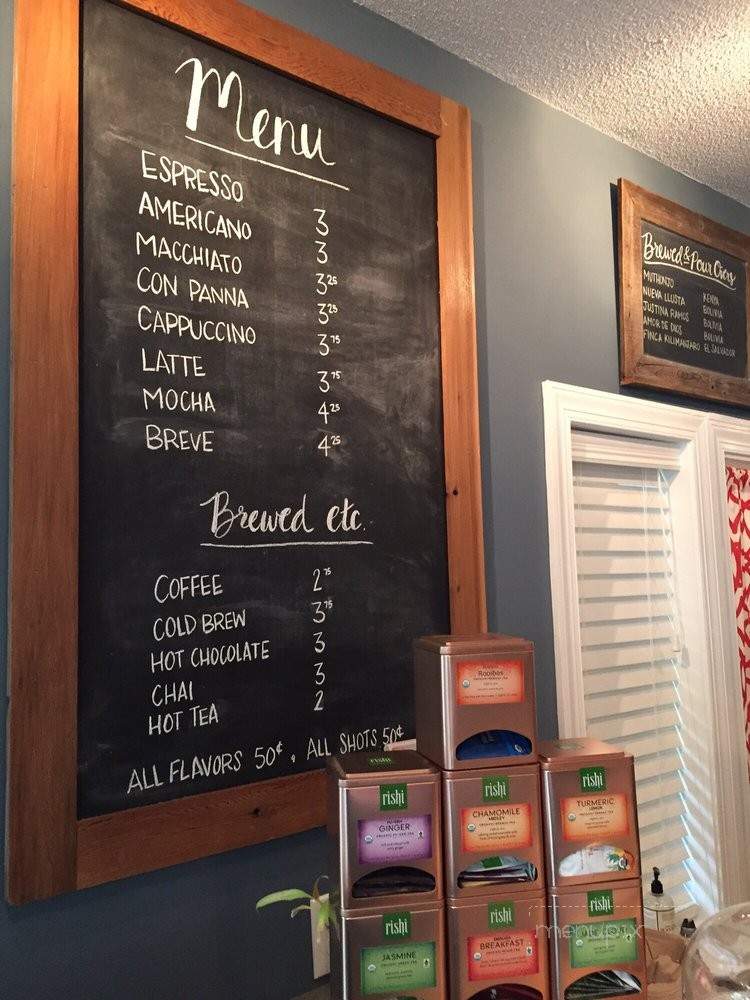 Menu
ESPRESSO 3
AMERICANO 3
MACCHIATO 3 25
CON PANNA 3 25
CAPPUCCINO 3 75
LATTE 3 75
MOCHA 4 25
BREVE 4 25
Brewed etc.
COFFEE 2 75
COLD BREW 3 75
HOT CHOCOLATE 3
CHAI 3
HOT TEA 2
ALL FLAVORS 50¢, ALL SHOTS 50¢
Brewed & Pour Overs
MUTHONJO KENYA
NUEVA LLUSTA BOLIVIA
JUSTINA RAMOS BOLIVIA
AMOR DE DIOS BOLIVIA
FINCA KILIMANJARO EL SALVADOR
Rooibos
rishi
GINGER
rishi
CHAMOMILE
MEDLEY
rishi
TURMERIC
LEMON
rishi
JASMINE
rishi
BREAKFAST
rishi
menupix